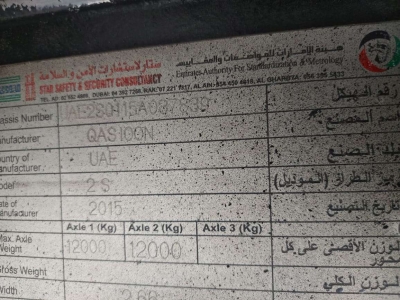 ستار لإستشارات الأمن و السلامة
STAR SAFETY & SECURITY CONSULTANCY
هيئة الإمارات للمواصفات والمقاييس
Emirates Authority For Standardization & Metrology
Chassis Number رقم الهيكل
Manufacturer QASIOON اسم المصنع
Country of Manufacturer UAE بلد الصنع
Model 2 S رمز الطراز (الموديل)
Date of Manufacturer 2015 تاريخ التصنيع
Axle 1 (Kg) Axle 2 (Kg) Axle 3 (Kg)
Max. Axle Weight 12000 12000 الوزن الأقصى على كل محور
Gross Weight الوزن الكلي